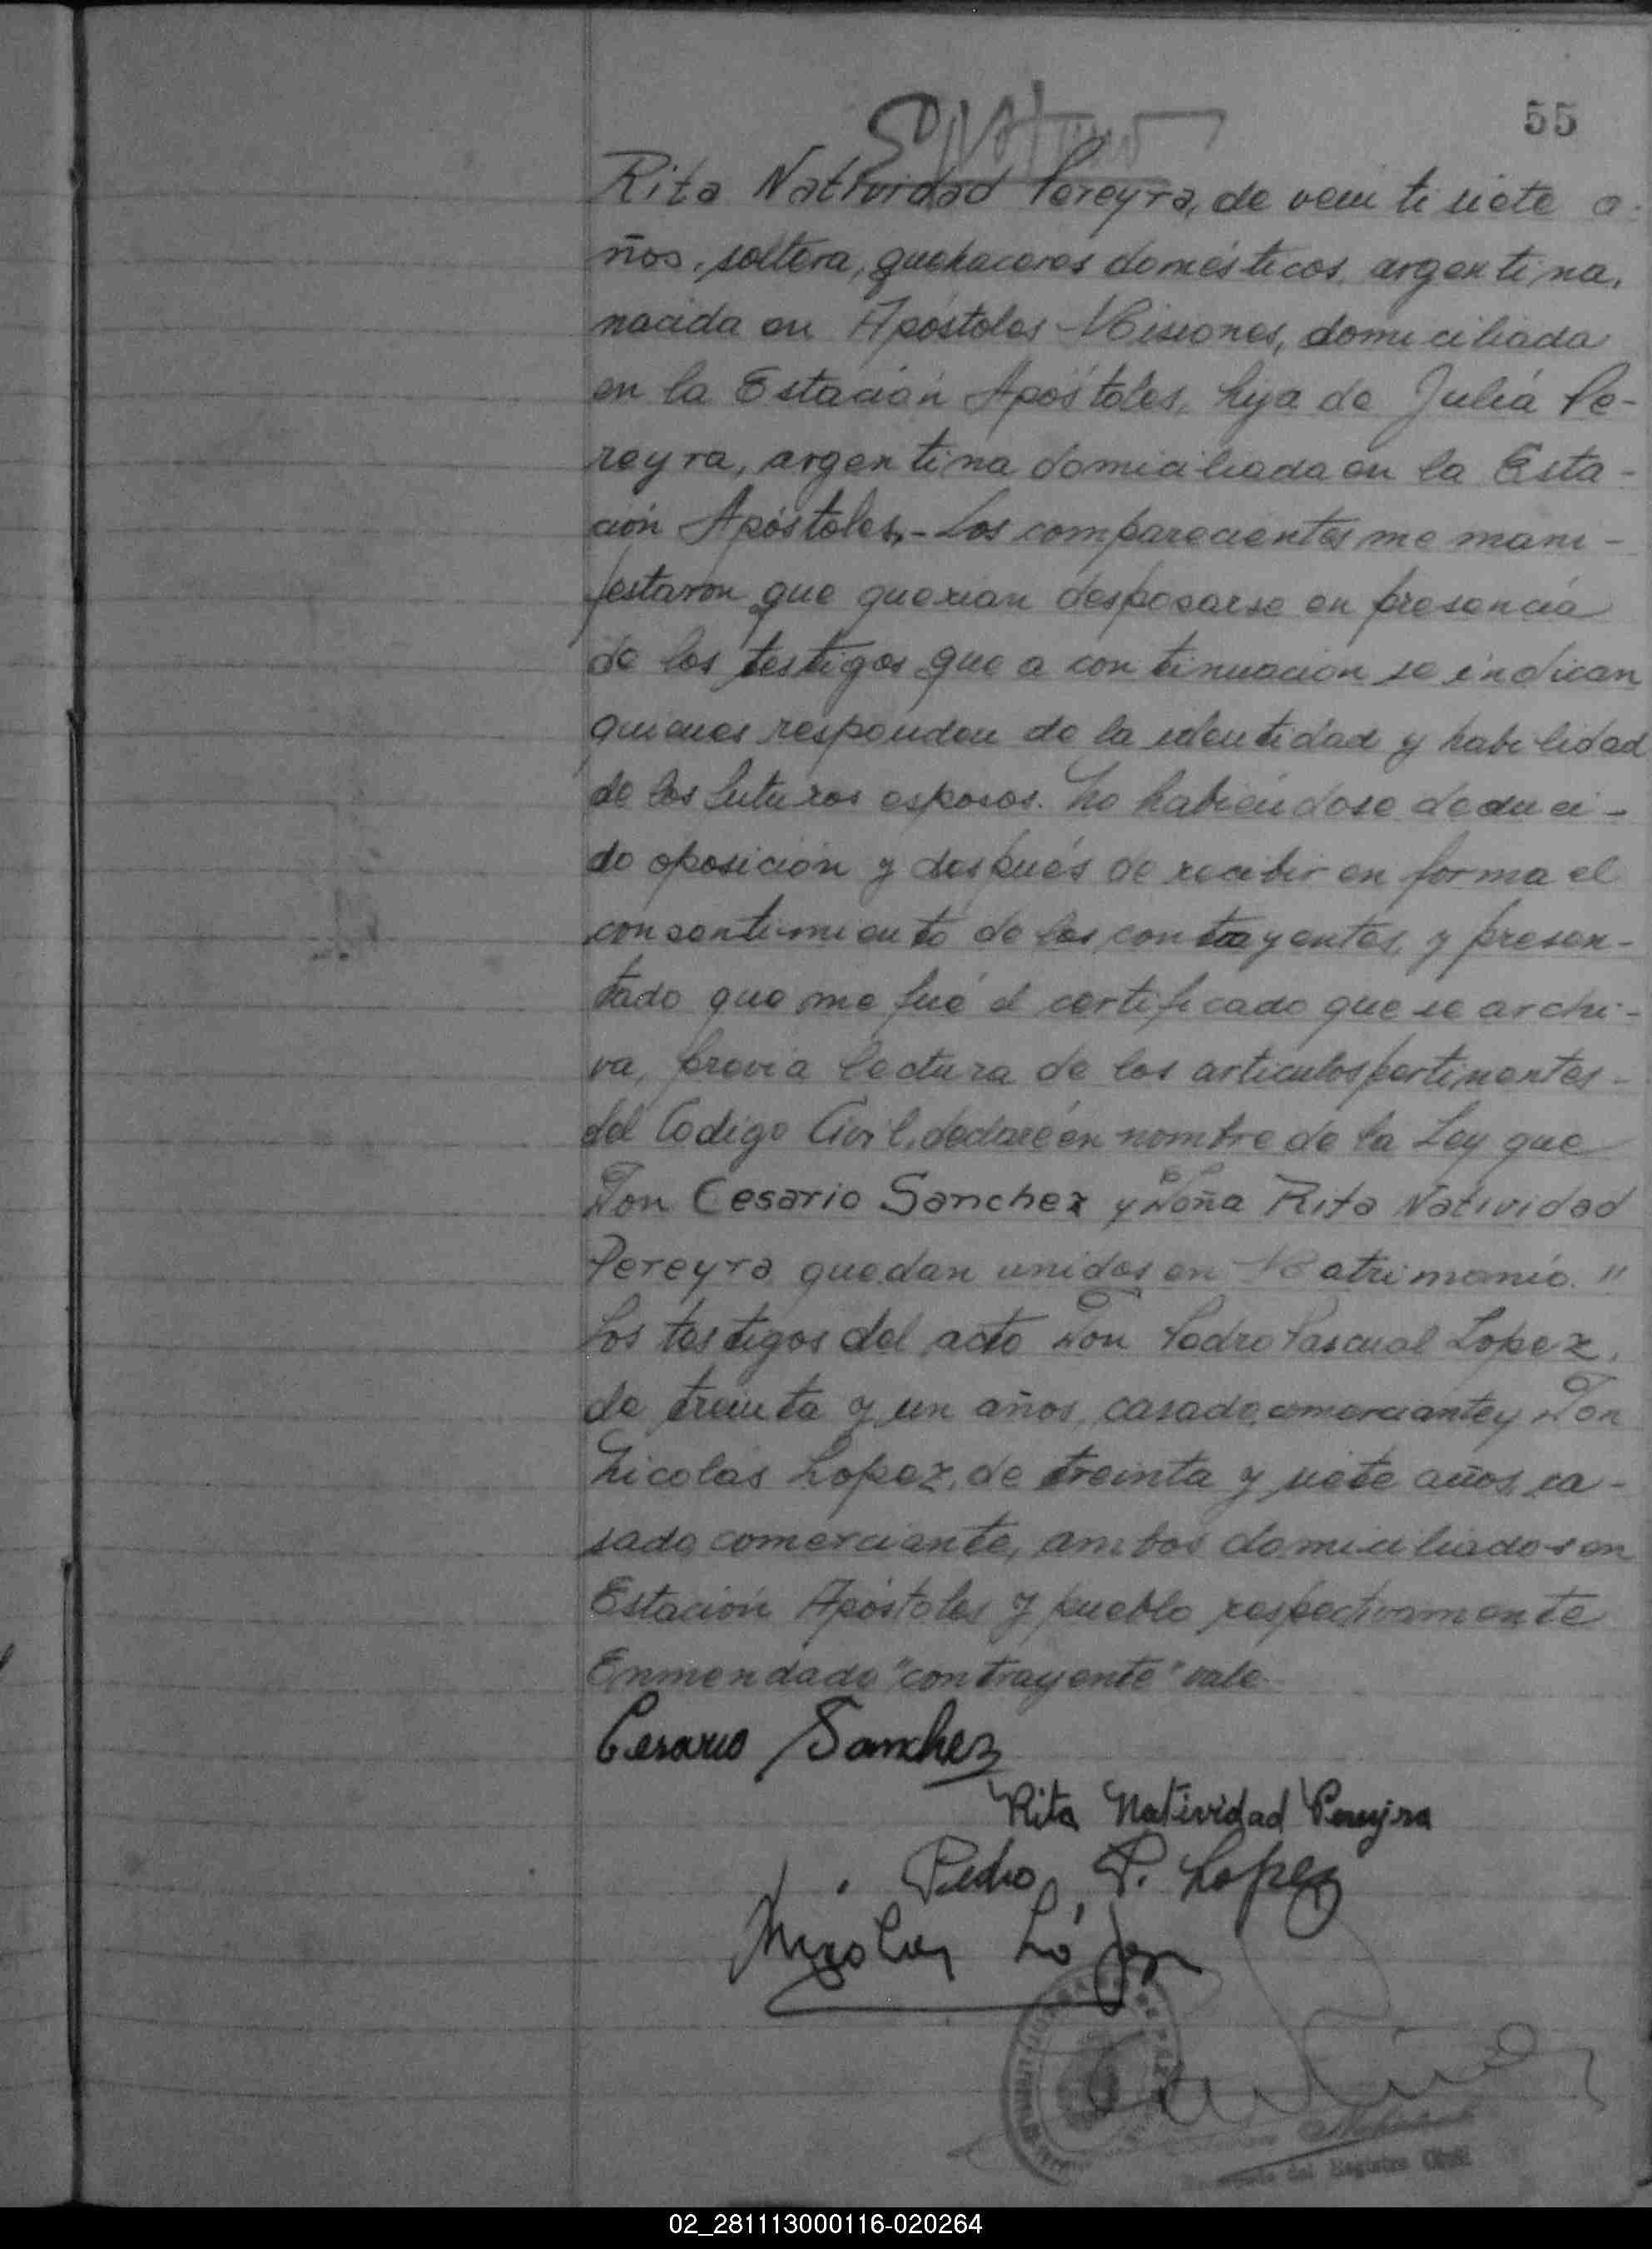 55
Rita Natividad Pereyra, de veintisiete a-
ños, soltera, quehaceres domésticos, argentina,
nacida en Apóstoles-Misiones, domiciliada
en la Estación Apóstoles, hija de Julia Pe-
reyra, argentina domiciliada en la Esta-
ción Apóstoles,- Los comparecientes me mani-
festaron que querian desposarse en presencia
de los testigos que a continuación se indican
quienes responden de la identidad y habilidad
de los futuros esposos. No habiéndose deduci-
do oposición y después de recibir en forma el
consentimiento de los contrayentes, y presen-
tado que me fué el certificado que se archi-
va, previa lectura de los articulos pertinentes-
del Codigo Civil, declaré en nombre de la Ley que
Don Cesario Sanchez y Doña Rita Natividad
Pereyra quedan unidos en Matrimonio."
Los testigos del acto Don Pedro Pascual Lopez,
de treinta y un años, casado, comerciante y Don
Nicolás Lopez, de treinta y siete años, ca-
sado, comerciante, ambos domiciliados en
Estación Apóstoles y pueblo respectivamente
Enmendado "contrayente" vale
Cesario Sanchez
Rita Natividad Pereyra
Pedro P. Lopez
Nicolas López
del Registro Civil
02_281113000116-020264